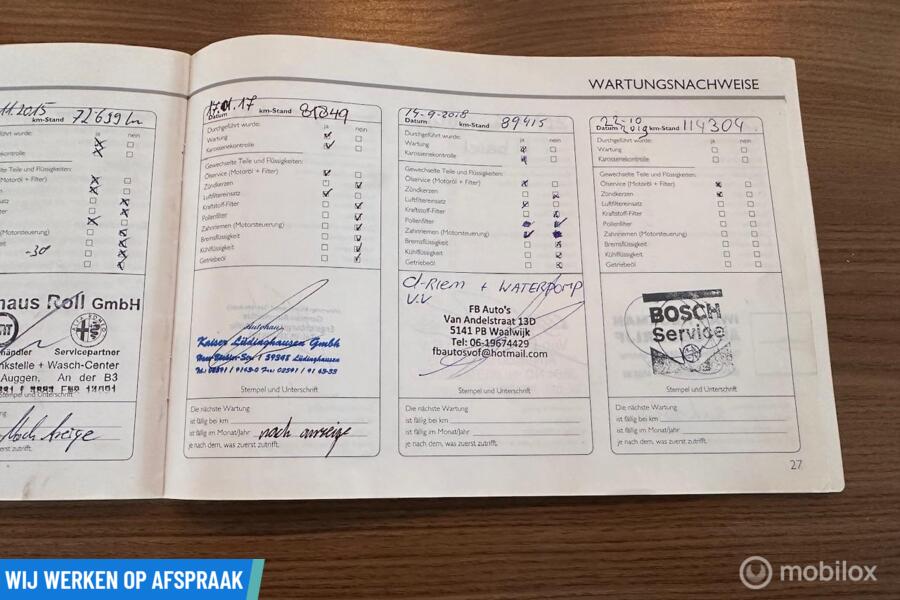 WARTUNGSNACHWEISE
11.2015
km-Stand 72639 km
ja nein
-30
haus Roll GmbH
Servicepartner
nkstelle + Wasch-Center
Auggen, An der B3
Stempel und Unterschrift
Noch Anzeige
Datum 17.01.17 km-Stand 81849
Durchgeführt wurde: ja nein
Wartung
Karosseriekontrolle
Gewechselte Teile und Flüssigkeiten:
Ölservice (Motoröl + Filter)
Zündkerzen
Luftfiltereinsatz
Kraftstoff-Filter
Pollenfilter
Zahnriemen (Motorsteuerung)
Bremsflüssigkeit
Kühlflüssigkeit
Getriebeöl
Autohaus
Kaiser Lüdinghausen GmbH
Stempel und Unterschrift
Die nächste Wartung
ist fällig bei km
ist fällig im Monat/Jahr nach anzeige
je nach dem, was zuerst zutrifft.
14-9-2018
Datum km-Stand 89415
Durchgeführt wurde: ja nein
Wartung
Karosseriekontrolle
Gewechselte Teile und Flüssigkeiten:
Ölservice (Motoröl + Filter)
Zündkerzen
Luftfiltereinsatz
Kraftstoff-Filter
Pollenfilter
Zahnriemen (Motorsteuerung)
Bremsflüssigkeit
Kühlflüssigkeit
Getriebeöl
d-Riem + WATERPOMP
V.V
FB Auto's
Van Andelstraat 13D
5141 PB Waalwijk
Tel: 06-19674429
fbautosvof@hotmail.com
Stempel und Unterschrift
Die nächste Wartung
ist fällig bei km
ist fällig im Monat/Jahr
je nach dem, was zuerst zutrifft.
22-10
Datum 2019 km-Stand 114304
Durchgeführt wurde: ja nein
Wartung
Karosseriekontrolle
Gewechselte Teile und Flüssigkeiten:
Ölservice (Motoröl + Filter)
Zündkerzen
Luftfiltereinsatz
Kraftstoff-Filter
Pollenfilter
Zahnriemen (Motorsteuerung)
Bremsflüssigkeit
Kühlflüssigkeit
Getriebeöl
BOSCH
Service
Stempel und Unterschrift
Die nächste Wartung
ist fällig bei km
ist fällig im Monat/Jahr
je nach dem, was zuerst zutrifft.
27
WIJ WERKEN OP AFSPRAAK
mobilox